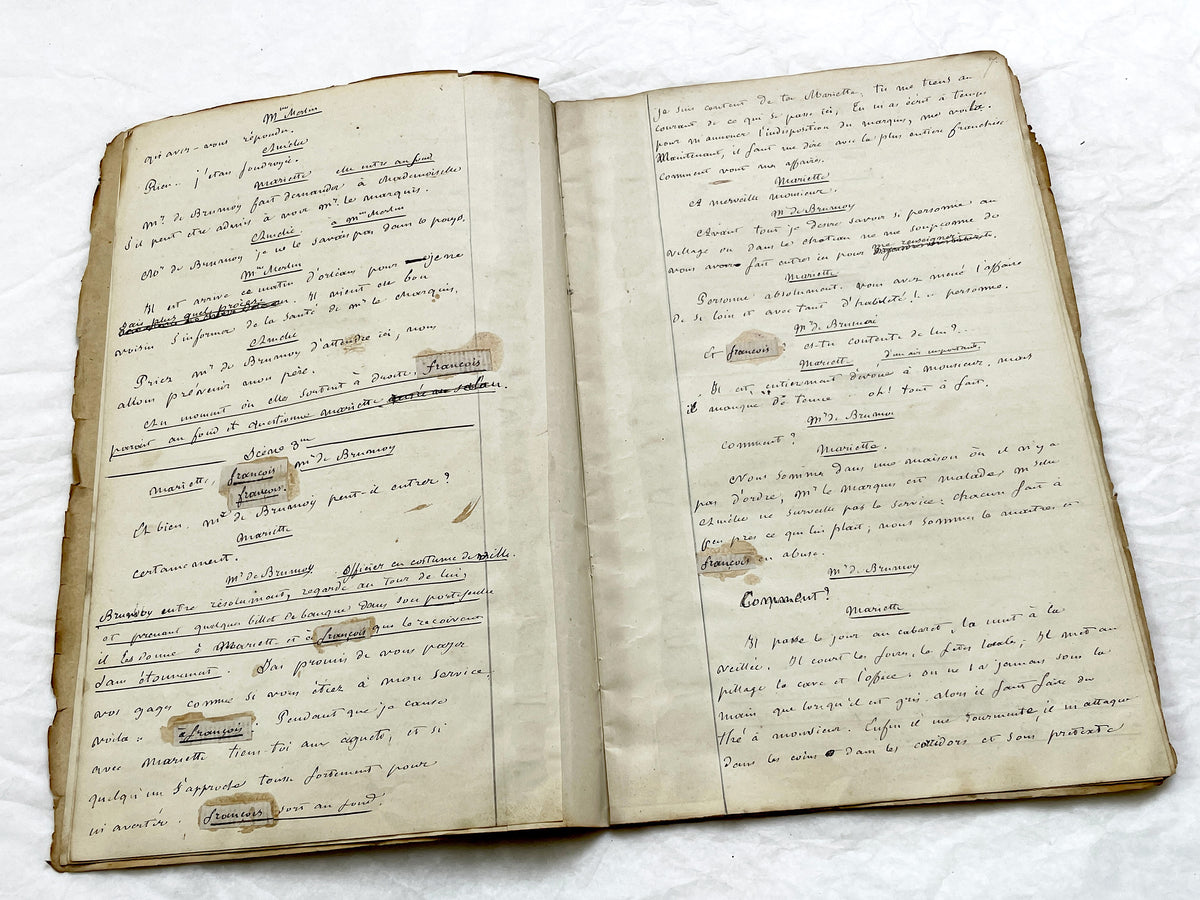 Mme Merlin
qu'avez-vous répondu.
Amélie
Rien.. j'étais foudroyée.
Mariette elle entre au fond
Mr. de Brumoy fait demander à Mademoiselle
s'il peut être admis à voir Mr. le marquis.
Amélie à Mme Merlin
Mr de Brumoy je ne le savais pas dans le pays.
Mme Merlin
Il est arrivé ce matin d'orléans pour je ne
sais plus quel procès. Il vient de bon
voisin s'informer de la santé de Mr le Marquis.
Amélie
Priez Mr de Brumoy d'attendre ici, nous
allons prévenir mon père.
Au moment où elle sortent à droite, françois
parait au fond et questionne Mariette
Scène 8me
Mariette, françois Mr de Brumoy
françois.
Et bien. Mr de Brumoy peut-il entrer ?
Mariette
certainement.
Mr de Brumoy Officier en costume de ville.
Brumoy entre résolument, regarde au tour de lui,
et prenant quelques billet de banque dans son portefeuille
il les donne à Mariette et à françois que le reçoivent
sans étonnement. J'ai promis de vous payer
vos gages comme si vous étiez à mon service.
voila. à françois. Pendant que je cause
avec Mariette tiens-toi aux aguets, et si
quelqu'un s'approche tousse fortement pour
m'avertir. françois sort au fond.
7
Je suis content de toi Mariette, tu me tiens au
courant de ce qui se passe ici, Tu m'as écrit à temps
pour m'annoncer l'indisposition du marquis, me voila.
Maintenant, il faut me dire avec la plus entière franchise
comment vont mes affaires.
Mariette
A merveille monsieur.
Mr de Brumoy
Avant tout je désire savoir si personne au
village ou dans le chateau ne me soupçonne de
vous avoir fait entrer ici pour me renseigner.
Mariette
Personne absolument. vous avez mené l'affaire
de si loin et avec tant d'habileté !... personne.
Mr de Brumoi
Et françois ? es-tu contente de lui ?...
Mariette d'un air important
Il est entièrement dévoué à monsieur, mais
il manque de tenue .. oh ! tout à fait.
Mr de Brumoi
comment ?
Mariette.
Nous somme dans une maison où il n'y a
pas d'ordre, Mr le Marquis est malade, Melle
Amélie ne surveille pas le service : chacun fait à
peu près ce qui lui plait ; nous sommes les maîtres et
françois en abuse.
Mr de Brumoy
Comment ?
Mariette
Il passe le jour au cabaret, la nuit à la
veillée. Il court les foires, les fêtes locales ; Il met au
pillage la cave et l'office : on ne l'a jamais sous la
main que lorsqu'il est gris. alors il faut faire du
thé à monsieur. Enfin il me tourmente, il m'attaque
dans les coins dans les corridors et sous prétexte